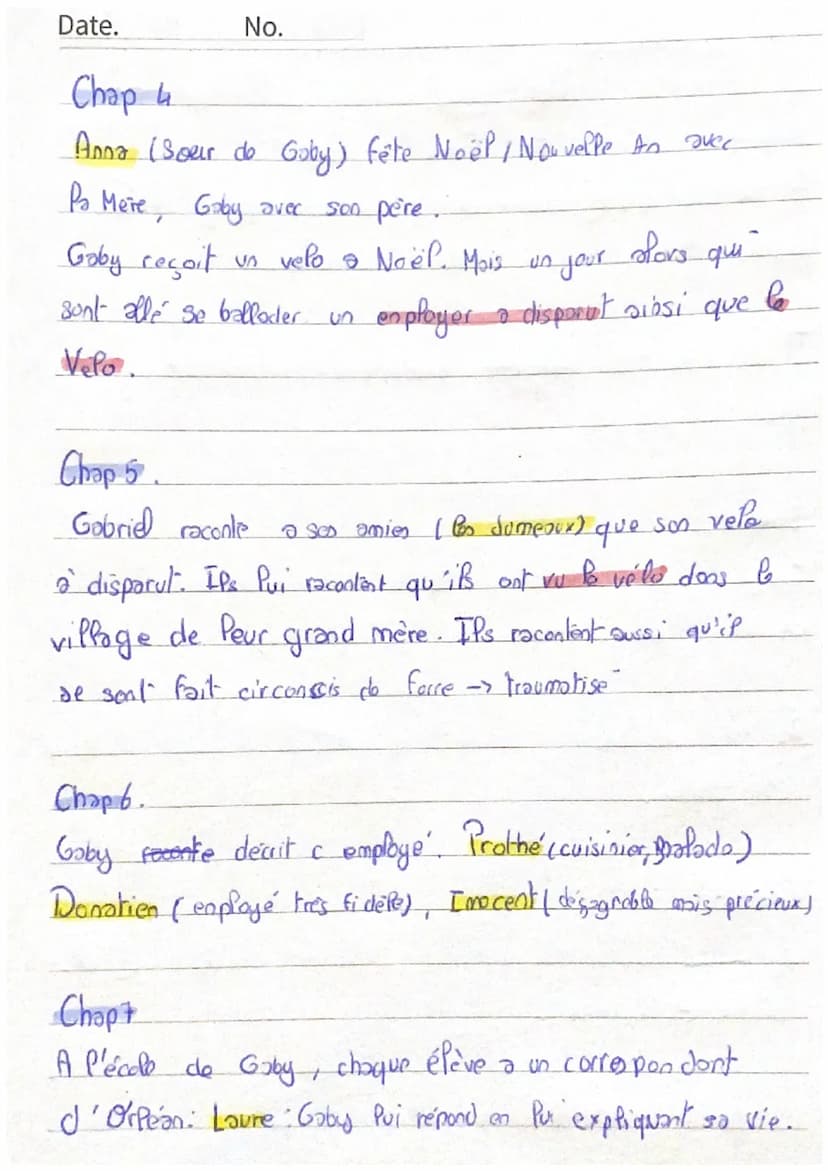 Date. No.
Chap 4
Anna (Soeur de Gaby) fête Noël / Nouvelle An avec
la Mère, Gaby avec son père.
Gaby reçoit un velo a Noël. Mais un jour alors qui
sont allé se ballader un employer a disparut ainsi que le
Velo.
Chap 5.
Gabriel raconte a ses amies (les Jumeaux) que son velo
à disparut. Ils lui racontent qu'ils ont vu le vélo dans le
village de leur grand mère. Ils racontent aussi qu'il
se sont fait circonscis de force -> traumatise
Chap 6.
Gaby raconte décrit c employé. Prothé (cuisinier, malade)
Donatien (employé très fidèle), Innocent (désagrable mais précieux)
Chap 7
A l'école de Gaby, chaque élève a un correspondant
d'Orléan: Laure: Gaby lui répond en lui expliquant sa vie.